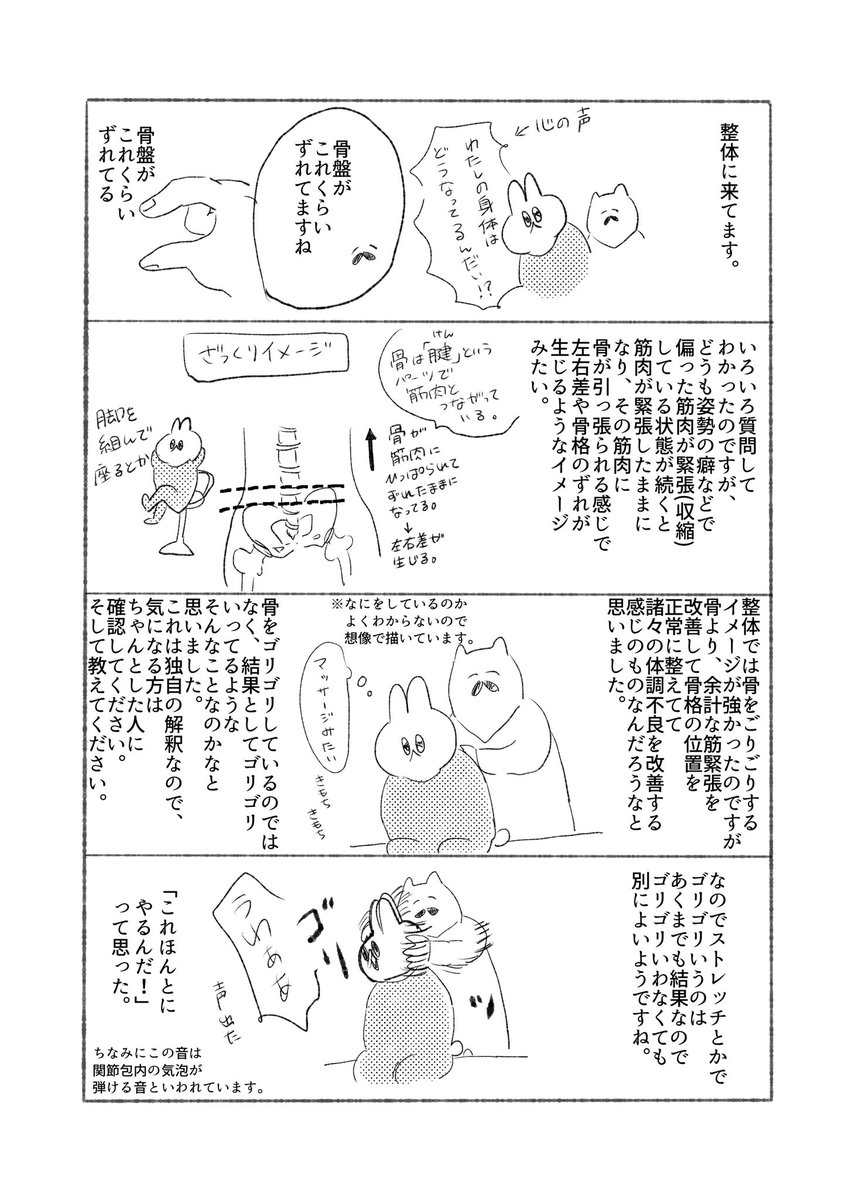 整体に来てます。
←心の声
わたしの身体は
どうなってるんだい!?
骨盤が
これくらい
ずれてますね
骨盤が
これくらい
ずれてる
いろいろ質問して
わかったのですが、
どうも姿勢の癖などで
偏った筋肉が緊張(収縮)
している状態が続くと
筋肉が緊張したままに
なり、その筋肉に
骨が引っ張られる感じで
左右差や骨格のずれが
生じるようなイメージ
みたい。
けん
骨は「腱」という
パーツで
筋肉と
つながって
いる。
ざっくりイメージ
骨が
筋肉に
ひっぱられて
ずれたままに
なってる。
↓
左右差が
生じる。
脚を
組んで
座るとか
整体では骨をごりごりする
イメージが強かったのですが
骨より、余計な筋緊張を
改善して骨格の位置を
正常に整えてて
諸々の体調不良を改善する
感じのものなんだろうなと
思いました。
※なにをしているのか
よくわからないので
想像で描いています。
マッサージみたい
きもち
きもち
骨をゴリゴリしているのでは
なく、結果としてゴリゴリ
いってるような
そんなことなのかなと
思いました。
これは独自の解釈なので、
気になる方は
ちゃんとした人に
確認してください。
そして教えてください。
なのでストレッチとかで
ゴリゴリいうのは
あくまでも結果なので
ゴリゴリいわなくても
別によいようですね。
ゴリッ
うわぁぁ
声出た
「これほんとに
やるんだ！」
って思った。
ちなみにこの音は
関節包内の気泡が
弾ける音といわれています。